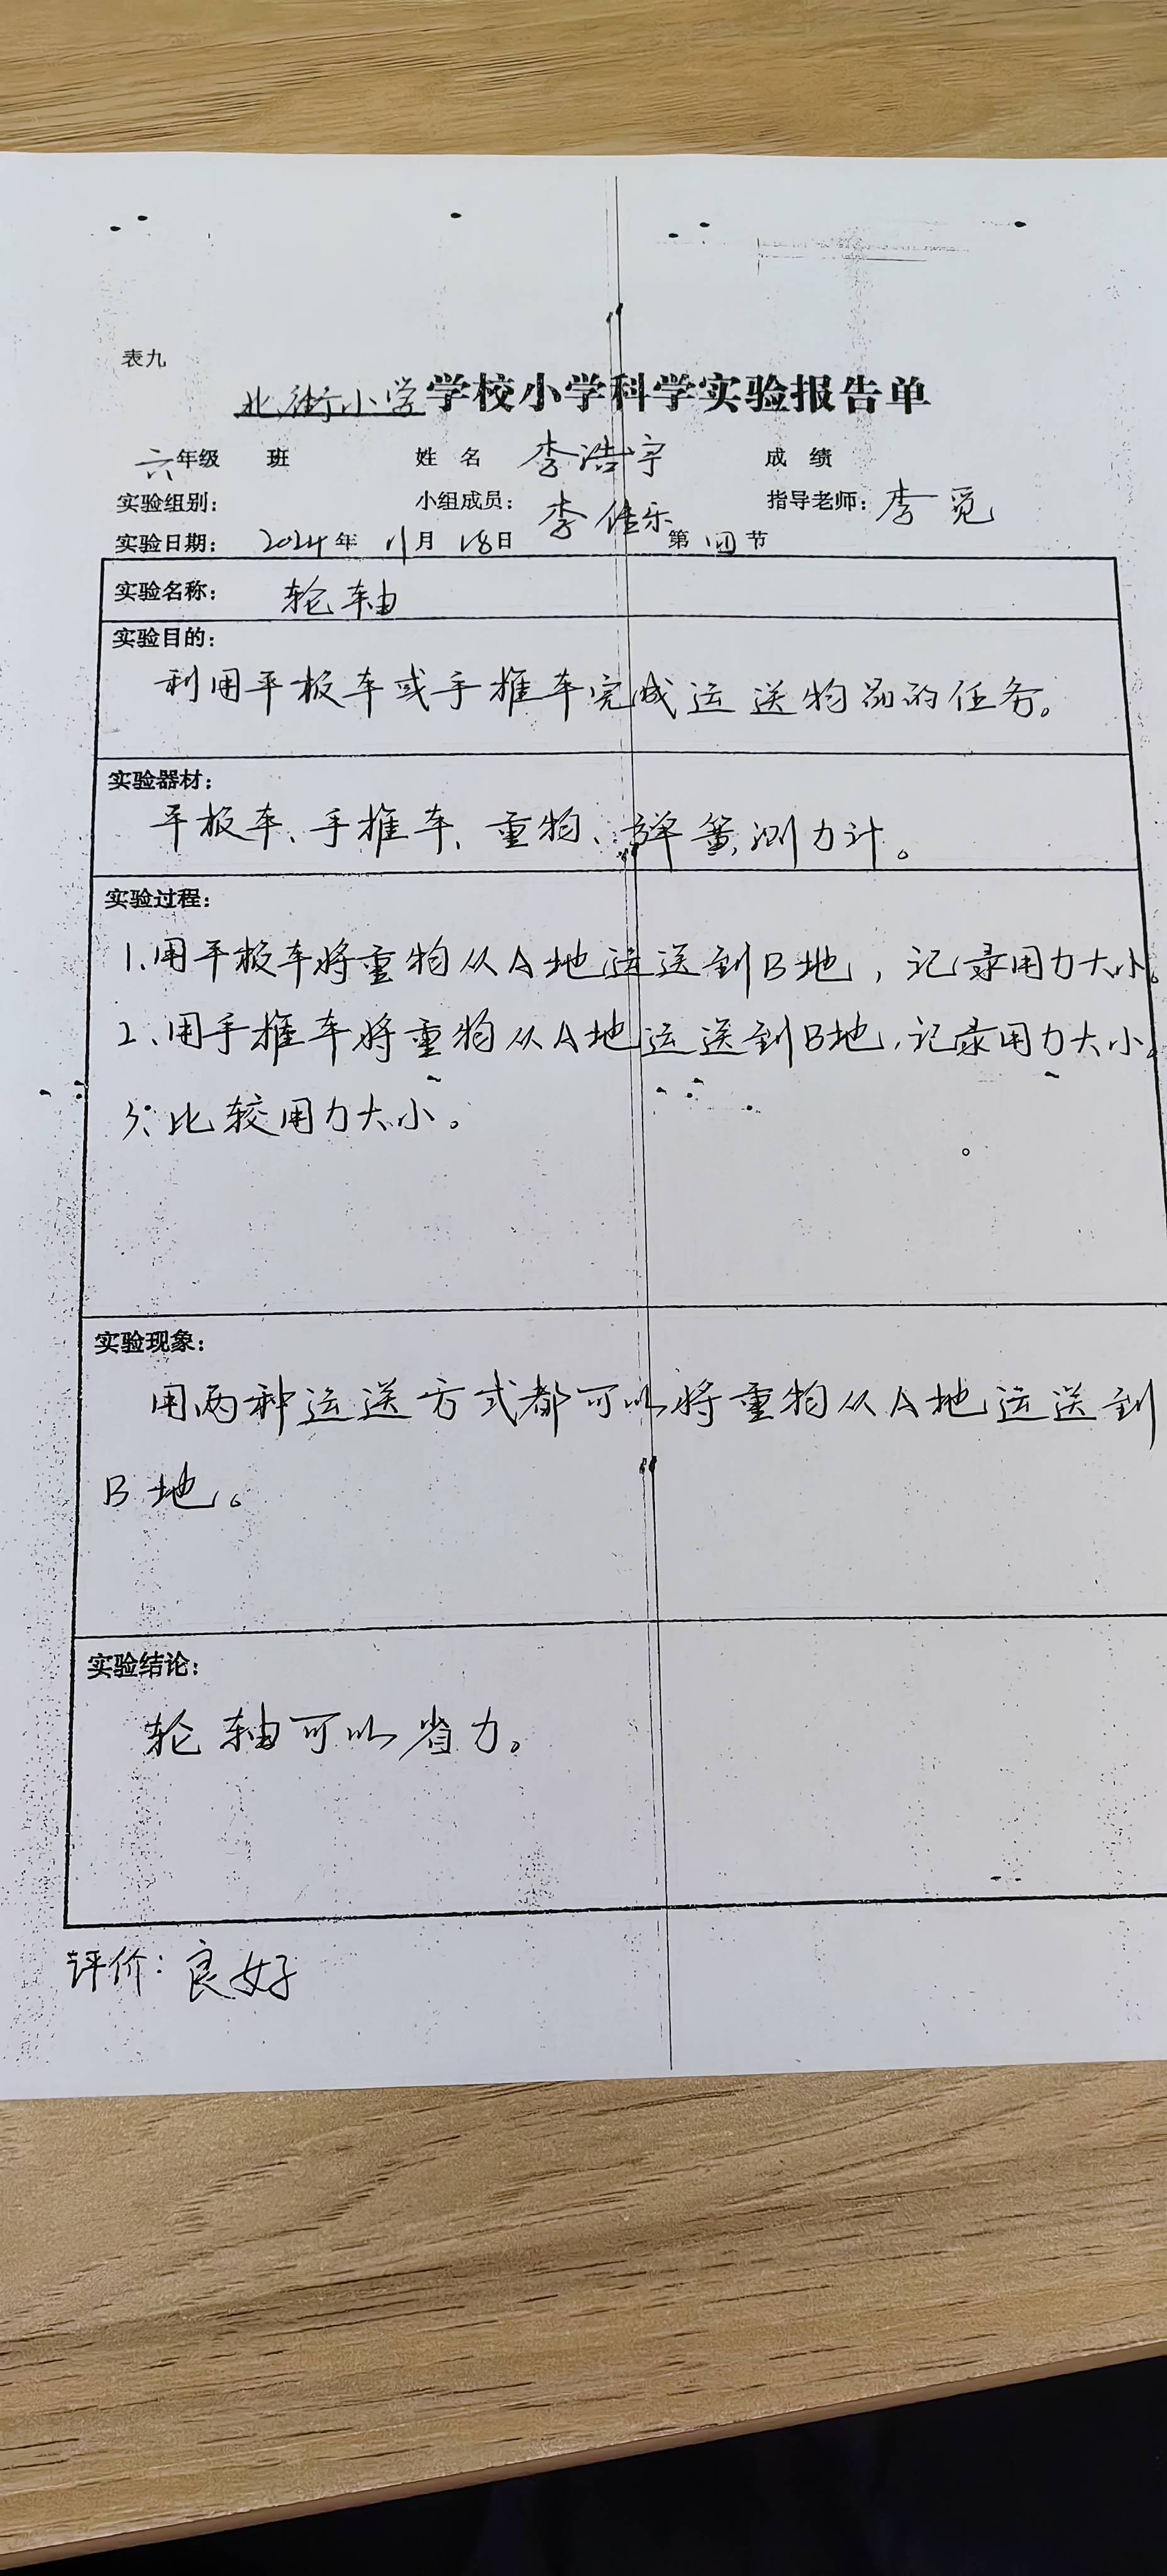 表九
北街小学学校小学科学实验报告单
六年级 班 姓名 李浩宇 成绩
实验组别： 小组成员：李佳乐 指导老师：李觅
实验日期： 2024年11月18日 第四节
实验名称： 轮轴
实验目的：
利用平板车或手推车完成运送物品的任务。
实验器材：
平板车、手推车、重物、弹簧测力计。
实验过程：
1、用平板车将重物从A地运送到B地，记录用力大小。
2、用手推车将重物从A地运送到B地，记录用力大小。
3、比较用力大小。
实验现象：
用两种运送方式都可以将重物从A地运送到
B地。
实验结论：
轮轴可以省力。
评价：良好